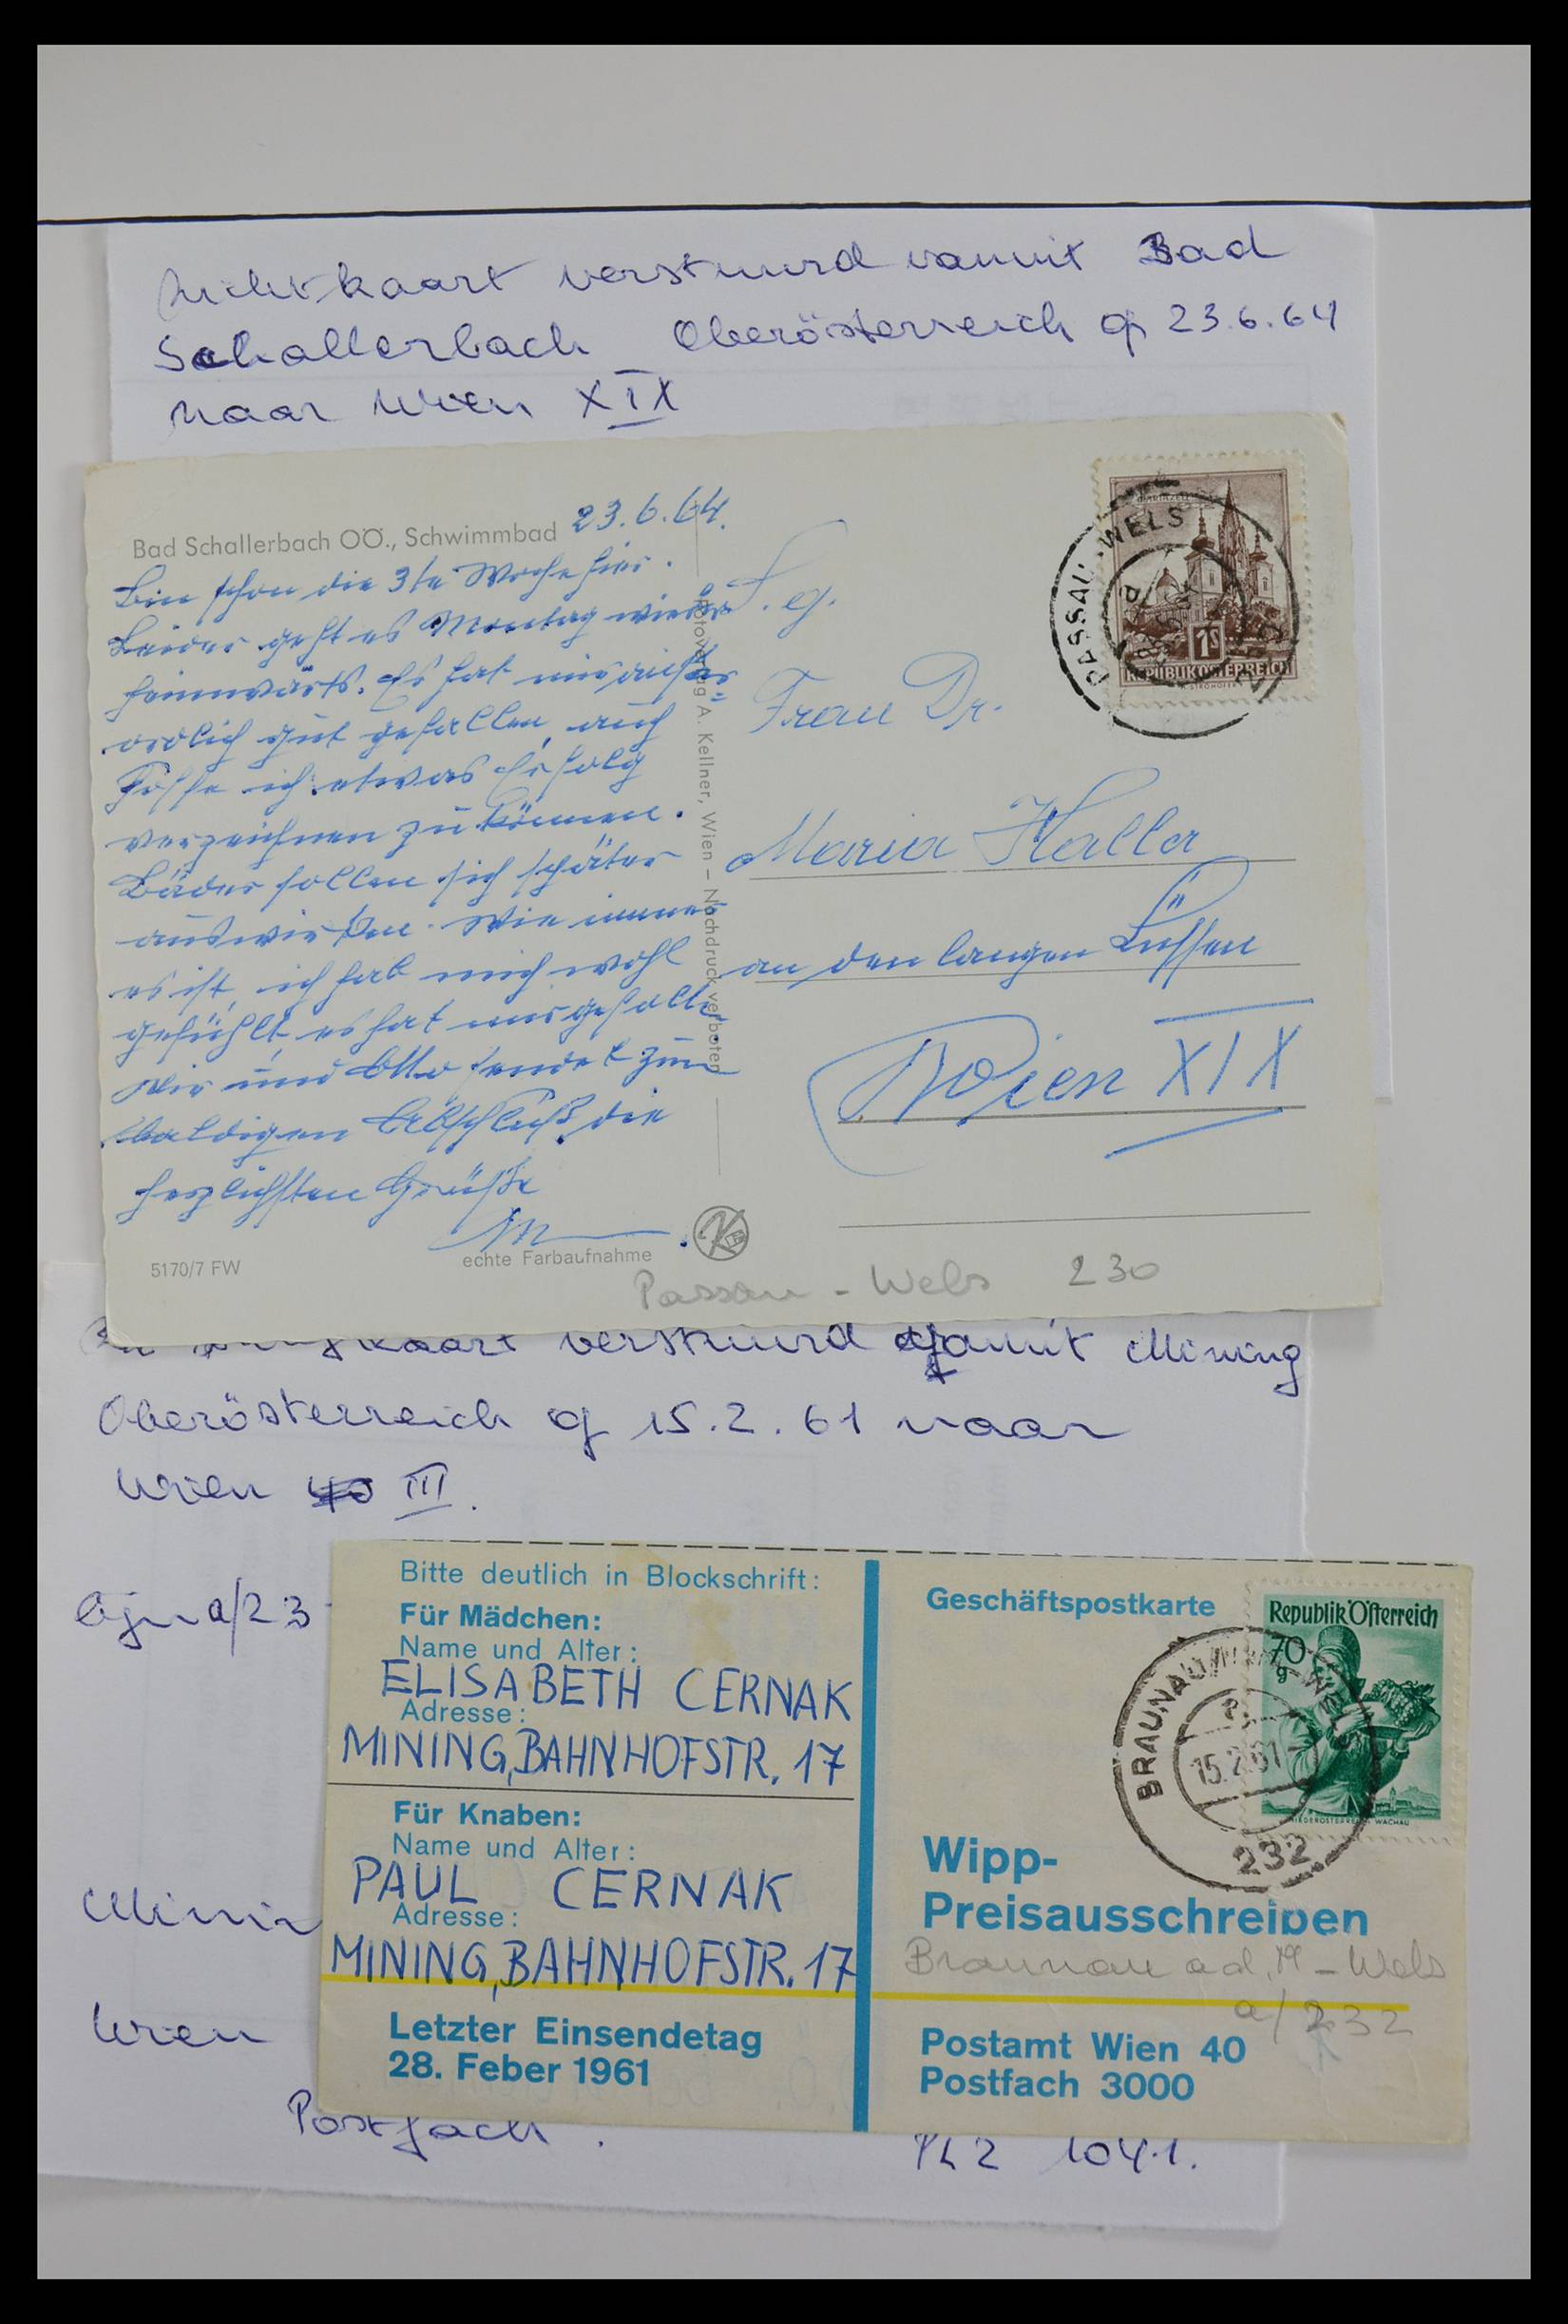 kaart verstuurd vanuit Bad
Schallerbach Oberösterreich op 23.6.64
naar Wien XIX
Bad Schallerbach OÖ., Schwimmbad 23.6.64.
Bin schon die 3te Woche hier.
Leider geht es Montag wieder
heimwärts. Es hat mir außer=
ordlich gut gefallen, auch
hoffe ich etwas Erfolg
verzeichnen zu können.
Bäder sollen sich später
auswirken. Wie immer
es ist, ich hab mich wohl
gefühlt, es hat mir gefallen.
Dir und Otto sendet zum
baldigen Abschluß die
herzlichsten Grüße
5170/7 FW
echte Farbaufnahme
Fotoverlag A. Kellner, Wien – Nachdruck verboten
PASSAU-WELS
MARIAZELL
1S
REPUBLIK ÖSTERREICH
Frau Dr.
Maria Haller
an den langen Lüssen
Wien XIX
Passau - Wels 230
kaart verstuurd vanuit Mining
Oberösterreich op 15.2.61 naar
Wien 40 III.
a/23
Bitte deutlich in Blockschrift:
Für Mädchen:
Name und Alter:
ELISABETH CERNAK
Adresse:
MINING, BAHNHOFSTR. 17
Für Knaben:
Name und Alter:
PAUL CERNAK
Adresse:
MINING, BAHNHOFSTR. 17
Letzter Einsendetag
28. Feber 1961
Geschäftspostkarte
Republik Österreich
70
g
NIEDERÖSTERREICH WACHAU
BRAUNAU
WELS
15.2.61
232
Wipp-
Preisausschreiben
Braunau a d. - Wels
a/232
Postamt Wien 40
Postfach 3000
Minin
Wien
Postfach.
PLZ 1041.